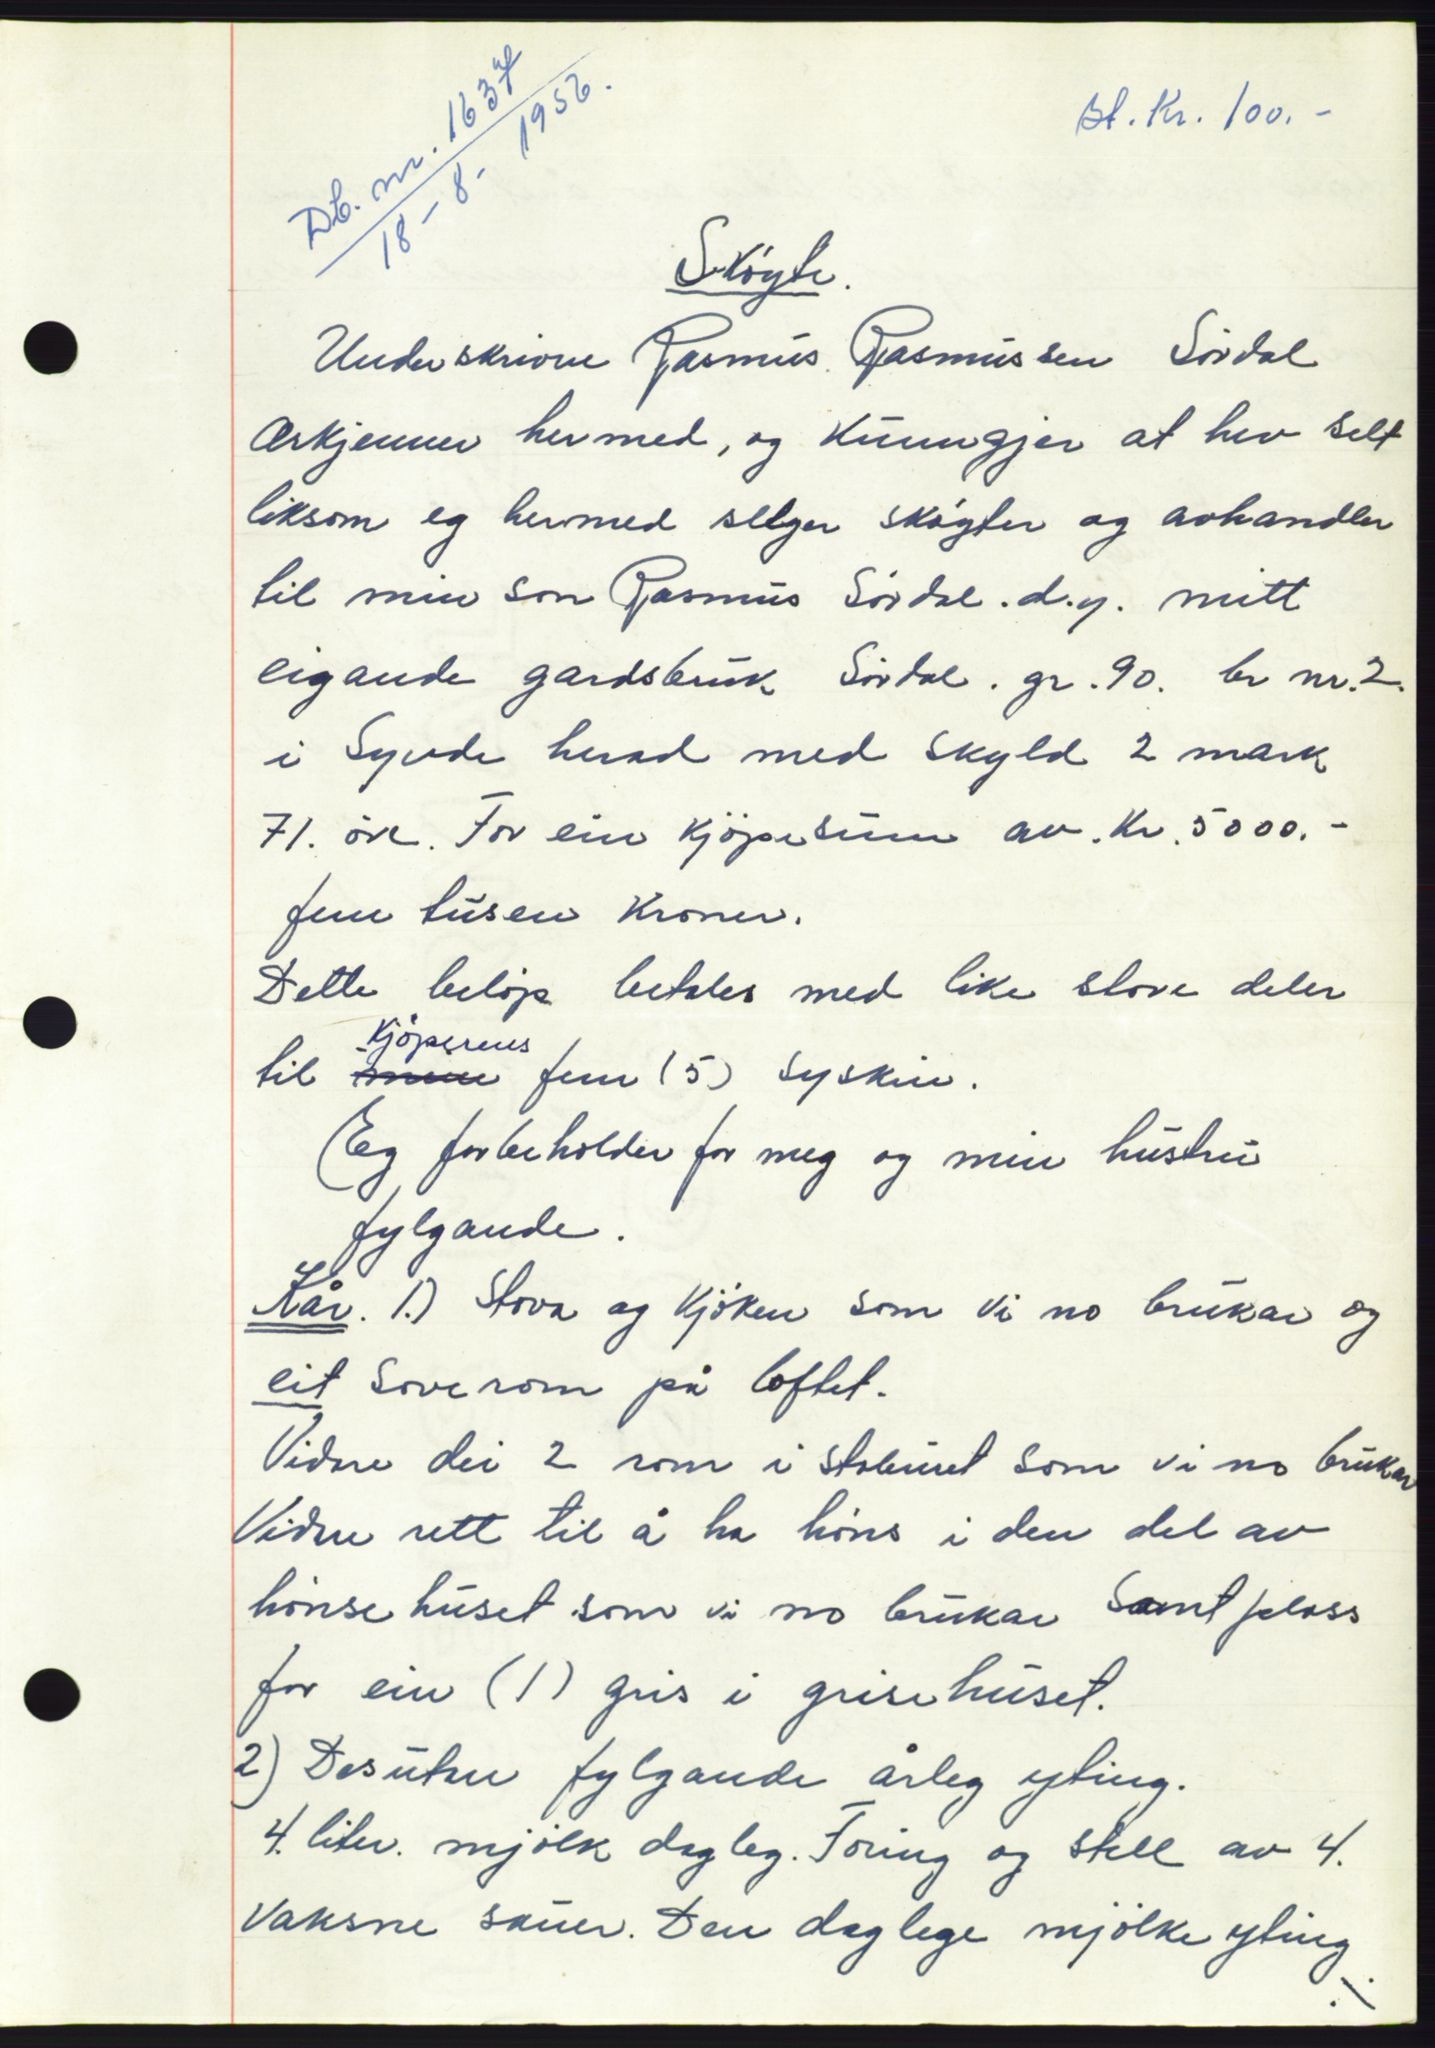 Db. nr. 1637
18-8-1956.
St. Kr. 100.-
Skøyte.
Underskrivne Rasmus Rasmussen Sördal
Ærkjenner hermed, og kunngjer at hev selt
liksom eg hermed selger skøyter og avhandler
til min son Rasmus Sördal. d.y. mitt
eigande gardsbruk Sördal. gr. 90. br nr. 2.
i Syvde herad med skyld 2 mark
71. öre. For ein kjöpesum av. Kr. 5000.-
fem tusen Kroner.
Dette belöp betales med like store deler
kjöperens
til mine fem (5) syskin.
Eg forbeholder for meg og min hustru
fylgande.
Kår. 1.) Stova og kjöken som vi no brukar og
eit soverom på loftet.
Vidare dei 2 rom i stabburet som vi no brukar
Vidare rett til å ha höns i den del av
hönsehuset som vi no brukar Samt plass
for ein (1) gris i grisehuset.
2) Desuten fylgande årleg yting.
4. liter. mjölk dagleg. Foring og stell av 4.
vaksne sauer. Den daglege mjölke yting
./.